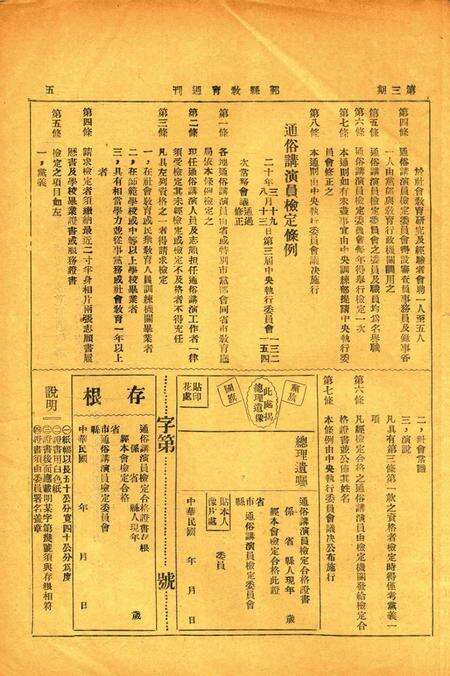 第三期
鄞縣教育週刊
五
於社會教育研究及經驗者會聘一人至五人
第四條　通俗講演員檢定委員會得設審查員事務員及錄事各
一人由黨部與教育行政機關調用之
第五條　通俗講演員檢定委員會之委員及職員均為名譽職
第六條　通俗講演員檢定委員會每年得舉行檢定一次
第七條　本通則如有未盡事宜由中央訓練部提請中央執行委
員會修正之
第八條　本通則由中央執行委員會議決施行
通俗講演員檢定條例
二十年三月十九日第三屆中央執行委員會一三二
八月十三　　　　　　　　　　　　　　　　一五四
次常務會議通過
修正
第一條　各地通俗講演員由省或特別市黨部會同省市教育廳
局依本條例檢定之
第二條　現任通俗講演人員及志願担任通俗講演工作者一律
須受檢定其未經檢定或檢定不及格者不得充任
第三條　凡具左列資格之一者得請求檢定
一，在社會教育或民衆教育人員訓練機關畢業者
二，在師範學校或中等以上學校畢業者
三，具有相當學力並從事黨務或社會教育一年以上
者
第四條　請求檢定者須繳最近二寸半身相片兩張志願書履
歷書及學校畢業證書或服務證書
第五條　檢定之項目如左
一，黨義
二，社會常識
三，演說
凡具有第三條第一款之資格者檢定時得僅考黨義一
項
第六條　凡經檢定合格之通俗講演員由檢定機關發給檢定合
格證書並公佈其姓名
第七條　本條例由中央執行委員會議決公布施行
黨旗
此處揭總理遺像
國旗
總理遺囑
貼印花處
通俗講演員檢定合格證書
係　省　縣人現年　歲
經本會檢定合格此證
省市縣通俗講演員檢定委員會
委員
貼本人像片處
中華民國　年　月　日
字第　號
存根
通俗講演員檢定合格證書存根
係　省　縣人現年　歲
經本會檢定合格
省縣市通俗講演員檢定委員會
中華民國　年　月　日
說明
㈠紙幅以長五十公分寬四十公分為度
㈡證書用白色紙
㈢證書後面應載明某字第幾號須與存根相符
㈣證書須由委員署名蓋章